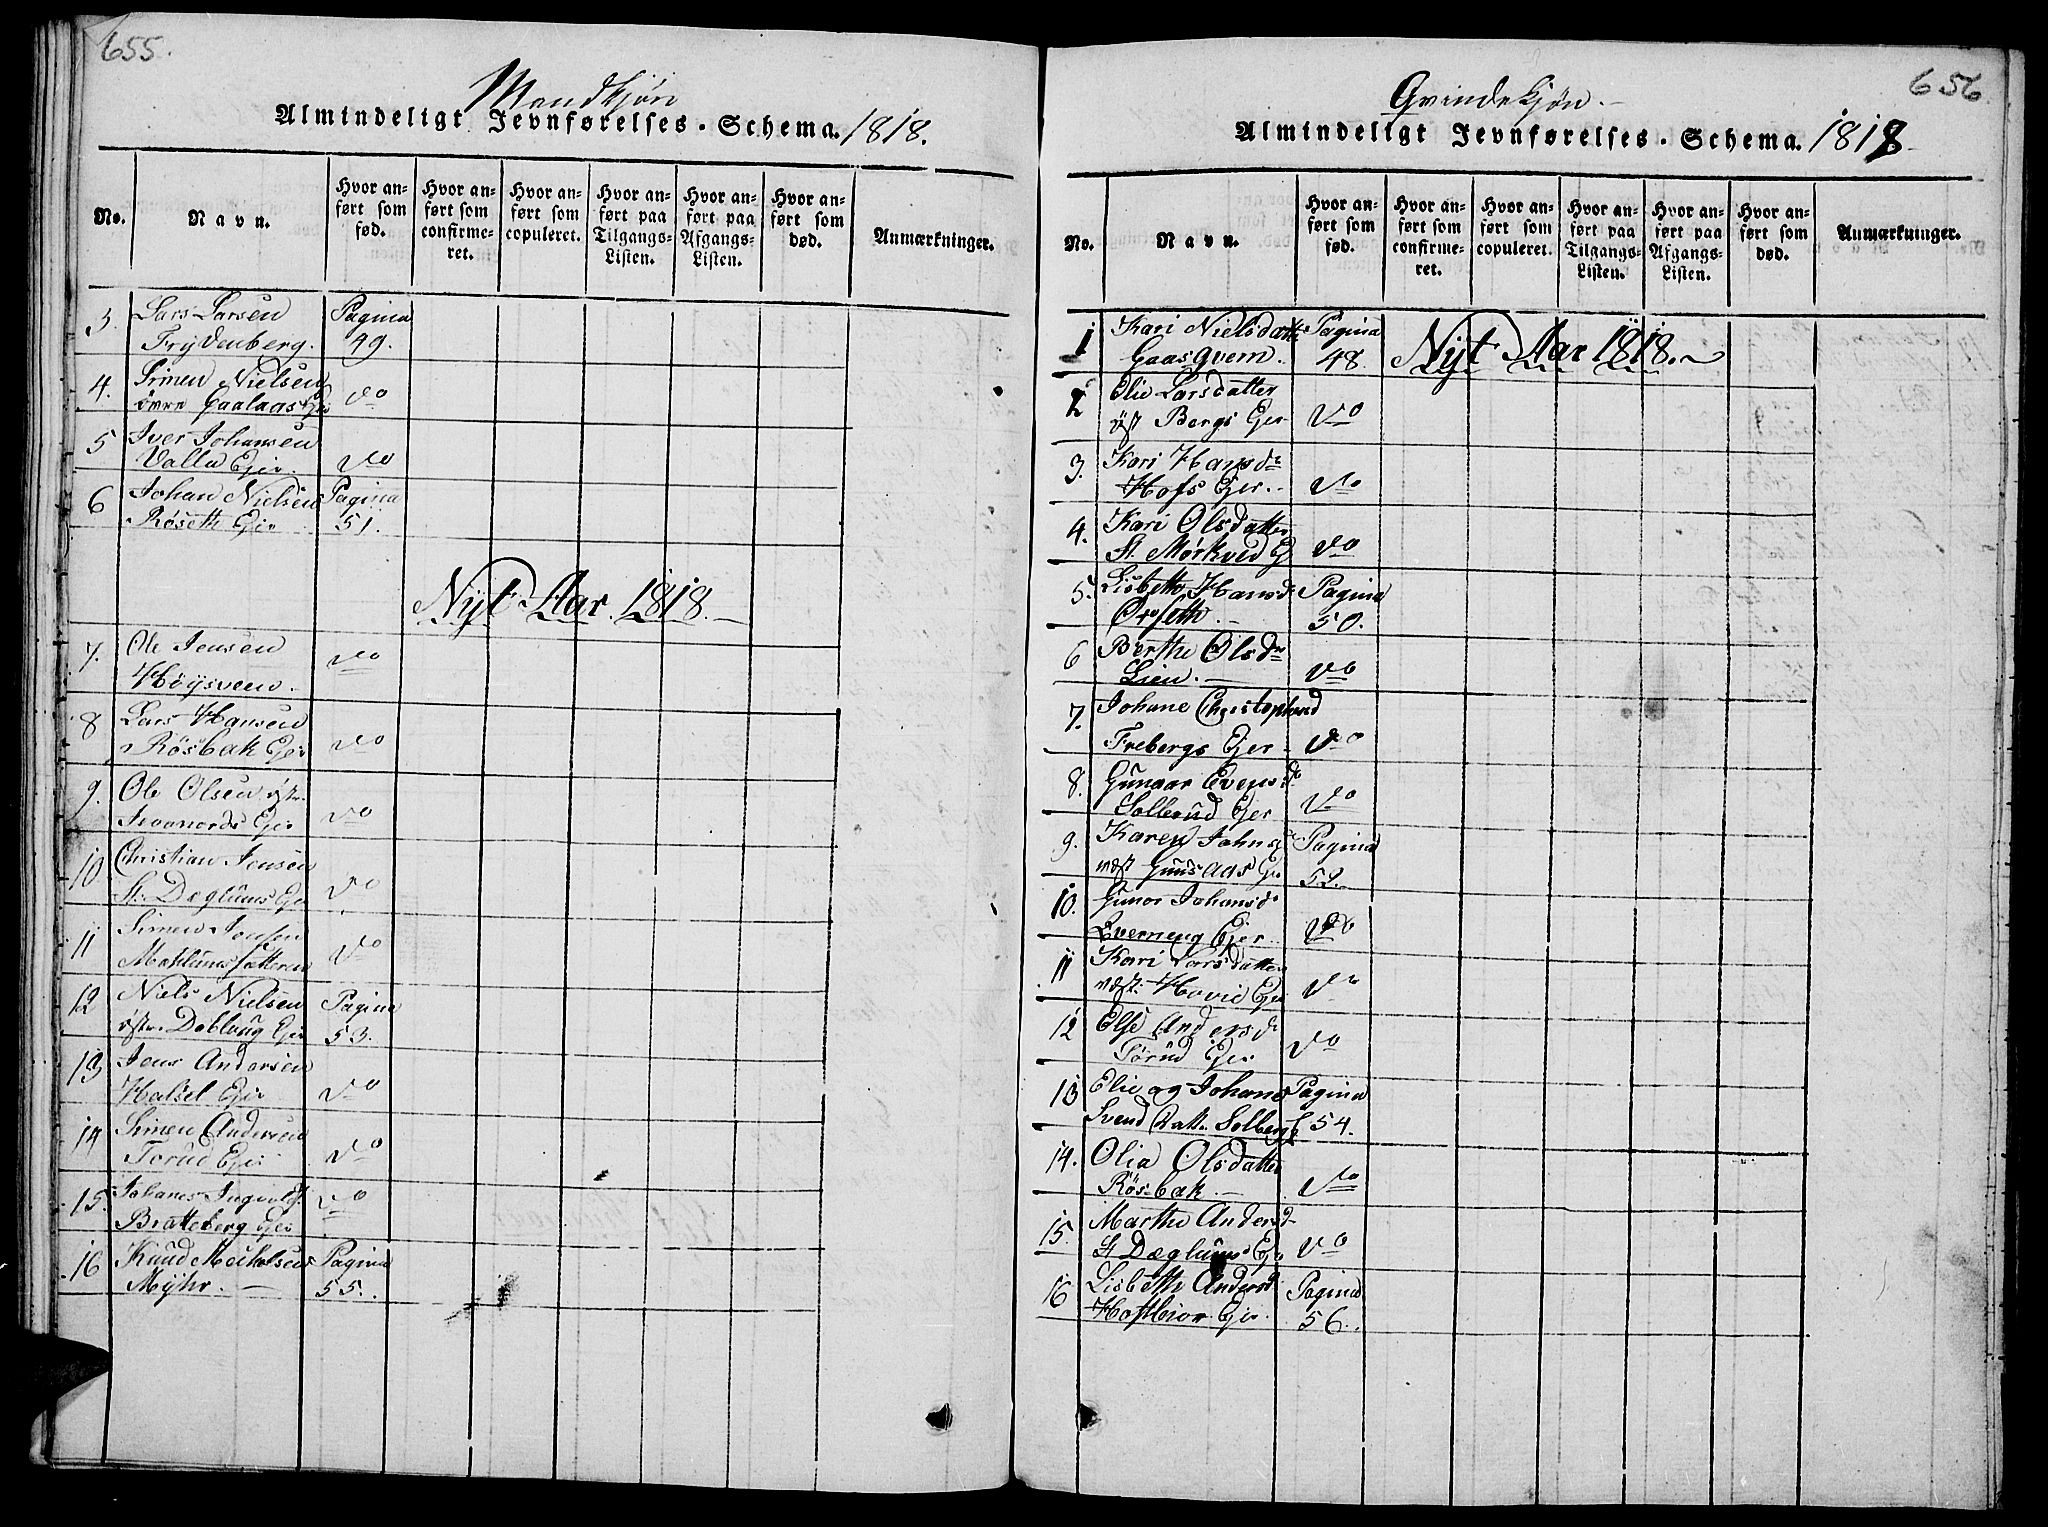 655.
Mandkjön
Almindeligt Jevnførelses-Schema. 1818.
No.
Navn.
Hvor anført som fød.
Hvor anført som confirmeret.
Hvor anført som copuleret.
Hvor anført paa Tilgangs-Listen.
Hvor anført paa Afgangs-Listen.
Hvor anført som død.
Anmærkninger.
3. Lars Larsen Pagina
Frydenberg. 49.
4. Simen Nielsen do
övre Caalaas Eje
5 Iver Johansen
Valla Ejer. do
6 Johan Nielsen Pagina
Röseth Ejer 51.
Nyt Aar 1818.
7. Ole Jensen do
Höysveen.
8 Lars Hansen
Rösbak Ejer do
9. Ole Olsen östr.
Ejer do
10. Christian Jensen
St. Dæglums Ejer do
11 Simen Jensen do
12 Niels Nielsen Pagina
östr. Deblvug Ejer 53.
13 Jens Andersen
Halsel Ejer do
14 Simen Andersen
Torud Ejer do
15. Johanes Ingvols. do
Bratteberg Ejer
16 Knud Micholsen Pagina
Myhr. 55.
656
Qvindekjön.
Almindeligt Jevnførelses-Schema. 1818
No.
Navn.
Hvor anført som fød.
Hvor anført som confirmeret.
Hvor anført som copuleret.
Hvor anført paa Tilgangs-Listen.
Hvor anført paa Afgangs-Listen.
Hvor anført som død.
Anmærkninger.
1 Kari Nielsdatt. Pagina Nyt Aar 1818.
Gaasqvern. 48.
2 Elie Larsdatter
öst Bergs Ejer do
3. Kari Hansdr
Hofs Ejer. do
4. Kari Olsdatter
St. Mörkved E do
5. Lisbeth Hansd. Pagina
Örseth. 50.
6 Berthe Olsdr
Lien. do
7. Johane Christophersd
Frebergs Ejer do
8. Gunaar Evensdr
Sollerud Ejer do
9. Karen Johnsd Pagina
væst Ejer 52.
10. Gunor Johansdr
Everneng Ejer do
11 Kari Larsdatter
væst. Hovid Ejer do
12 Else Andersdr
Törud Ejer do
13 Elie og Johane Pagina
Svend Datt. Solberg 54.
14. Olia Olsdatter
Rösbak do
15. Marthe Andersd
St Dæglums Ejer do
16 Lisbeth Andersd Pagina
Ejer. 56.